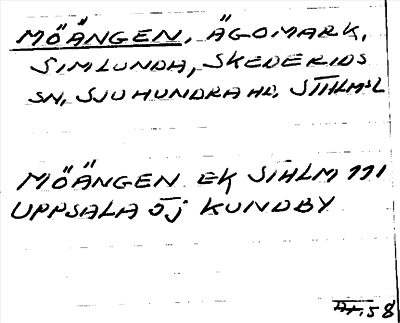 MÖÄNGEN, ÄGOMARK,
SIMLUNDA, SKEDERIDS
SN, SJUHUNDRA HD, STHLMSL
MÖÄNGEN EK STHLM 111
UPPSALA ÖJ KUNDBY
58